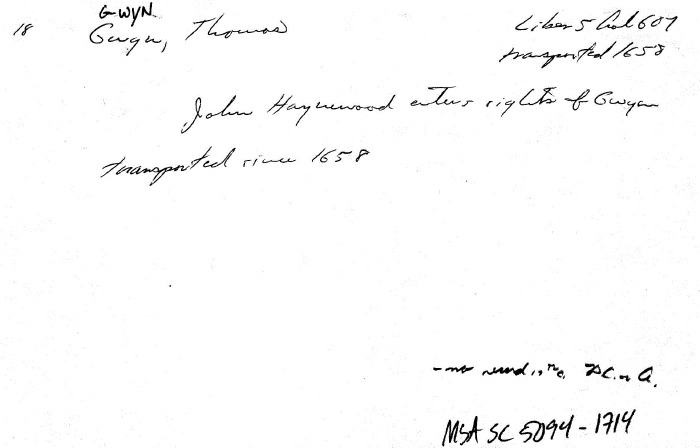 18 GWYN
Gwyn, Thomas Liber 5 fol 607
transported 1658
John Haynewood enters rights of Gwyn
transported since 1658
- not
MSA SC 5094-1714